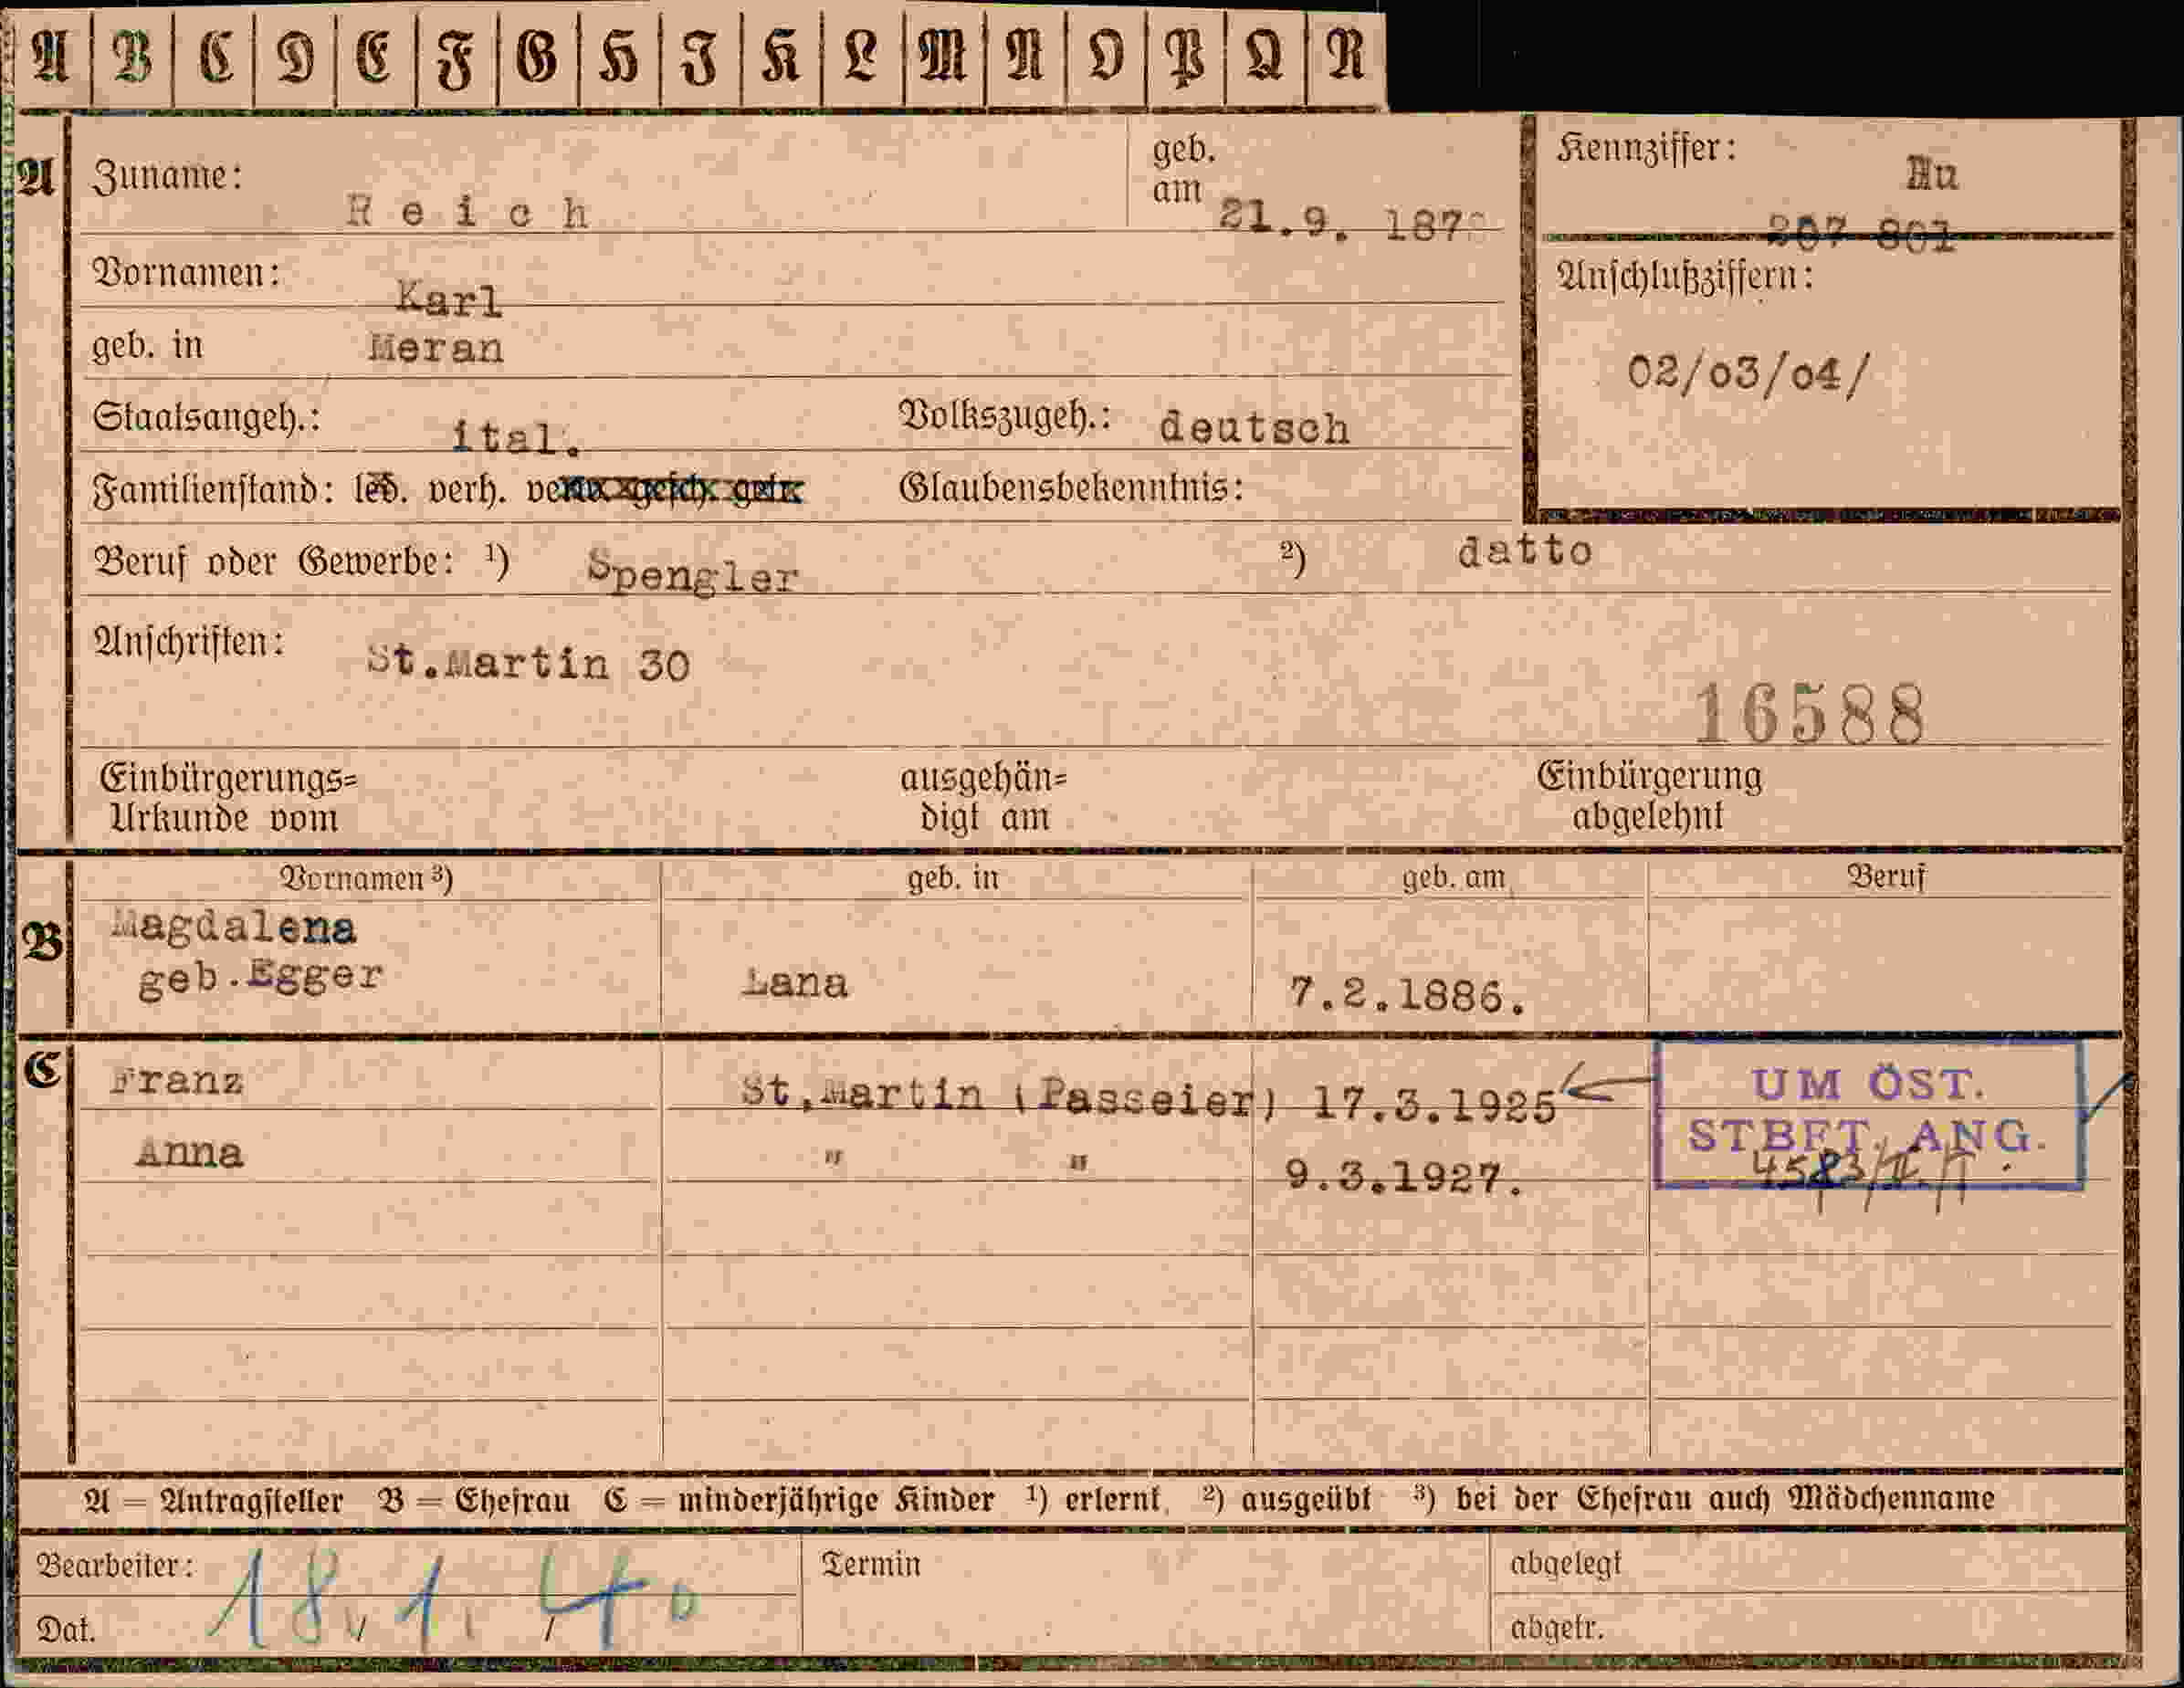 A B C D E F G H I K L M N O P Q R
A Zuname: Reich geb. am 21.9. 187
Kennziffer: Hu
207 801
Vornamen: Karl
Anschlußziffern:
geb. in Meran
02/o3/o4/
Staatsangeh.: ital. Volkszugeh.: deutsch
Familienstand: led. verh. verw. gesch. getr. Glaubensbekenntnis:
Beruf oder Gewerbe: ¹) Spengler ²) datto
Anschriften: St.Martin 30
16588
Einbürgerungs= ausgehän= Einbürgerung
Urkunde vom digt am abgelehnt
Vornamen ³) geb. in geb. am Beruf
B Magdalena
geb.Egger Lana 7.2.1886.
C Franz St,Martin (Passeier) 17.3.1925
UM ÖST.
STBFT. ANG.
Anna " " 9.3.1927.
A = Antragsteller B = Ehefrau C = minderjährige Kinder ¹) erlernt, ²) ausgeübt ³) bei der Ehefrau auch Mädchenname
Bearbeiter: Termin abgelegt
Dat. 18. 1. 40 abgetr.